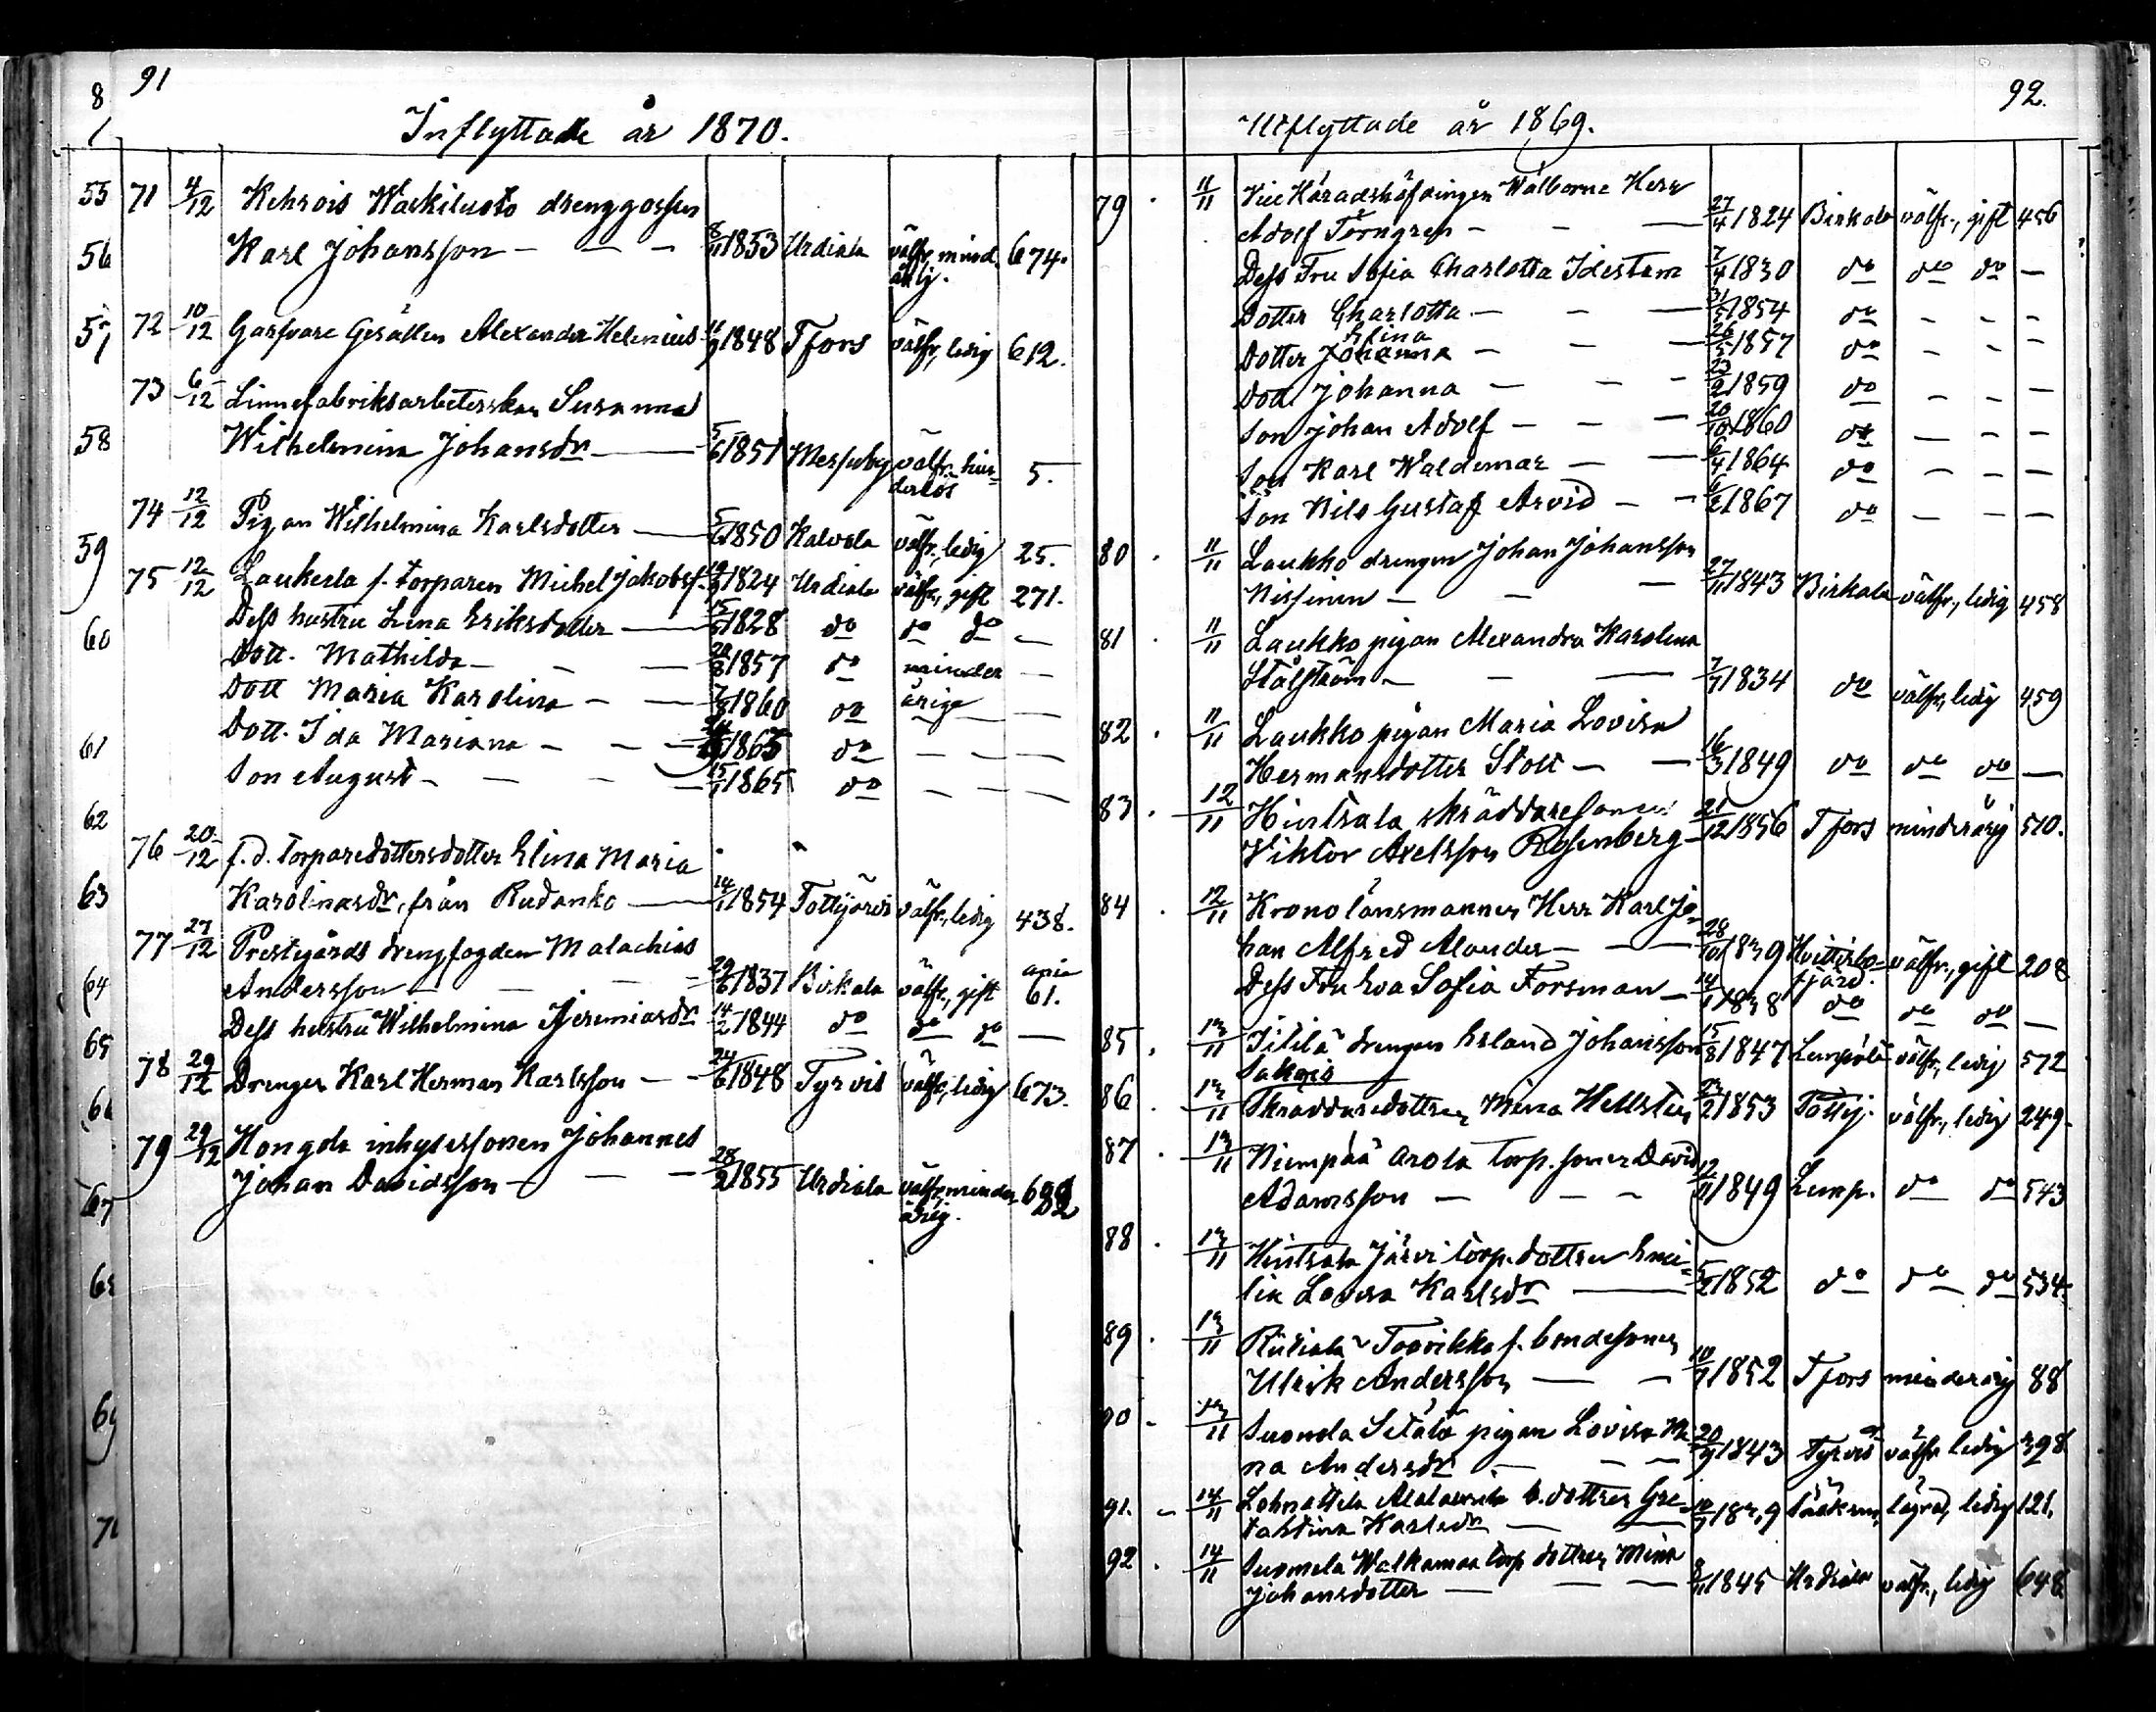 91
Inflyttade år 1870.
55 71 4/12 Kehrois Waekiluoto drenggossen
56 Karl Johansson — — — 8/11 1853 Urdiala välfr, mind. 674.
årig.
57 72 10/12 Garfvare Gesällen Alexander Helenius 11/9 1848 Tfors välfr, ledig 612.
73 6/12 Linnefabriksarbeterskan Susanna
58 Wilhelmina Johansdr — 5/6 1851 Messuby välfr. hin= 5.
derlös
74 12/12 Pigan Wilhelmina Karlsdotter — 5/6 1850 Kalvola välfr, ledig 25.
59 75 12/12 Laukeela f. torparen Michel Jakobsf. 1824 Urdiala välfr, gift 271.
60 Dess hustru Lena Eriksdotter — 15/6 1828 do do do —
Dott. Mathilda — — — 1857 do minder —
Dott Maria Karolina — — 1860 do årige —
61 Dott. Ida Mariana — — — 1865 do — — —
Son August — — — 15/1 1865 do — — —
62
76 20/12 f. d. torparedottersdotter Elina Maria
63 Karolinasdr, från Rudanko — 14/11 1854 Tottijärvi välfr, ledig 438.
77 27/12 Prestegårds drengfogden Malachias
64 Andersson — — — 29/6 1837 Birkala välfr, gift 61.
Dess hustru Wilhelmina Jeremiasdr 14/2 1844 do do do —
65 78 29/12 Drengen Karl Herman Karlsson — — 24/6 1848 Tyrvis välfr, ledig 673.
66 79 29/12 Hongola inhysessonen Johannes
67 Johan Davidsson — — — 28/2 1855 Urdiala välfr, minder
årig.
69
92.
Utflyttade år 1869.
79 . 11/11 Vice Häradshöfdingen Wälborne Herr
Adolf Törngren — — — 27/4 1824 Birkala välfr, gift 456
Dess Fru Sofia Charlotta Idestam 7/4 1830 do do do —
Dotter Charlotta — — — 31/5 1854 do — — —
Elina
Dotter Johanna — — — 26/5 1857 do — — —
Dott Johanna — — — 23/2 1859 do — — —
Son Johan Adolf — — — 20/10 1860 do — — —
Son Karl Waldemar — — 6/4 1864 do — — —
Son Nils Gustaf Arvid — — 1867 do — — —
80 . 11/11 Laukko drengen Johan Johansson
Nissinen — — — 27/11 1843 Birkala välfr., ledig 458
81 . 11/11 Laukko pigan Alexandra Karolina
Stålström — — — 7/7 1834 do välfr, ledig 459
82 . 11/11 Laukko pigan Maria Lovisa
Hermansdotter Stolt — — 16/3 1849 do do do —
83 . 12/11 Hintsala skräddaresonen
Viktor Axelsson Rosenberg — 21/12 1856 Tfors minderårig 510.
84 . 12/11 Krono länsmannen Herr Karl Jo=
han Alfred Alander — — — 28/10 1839 Hvittisbo= välfr., gift 208
fjärd.
Dess Fru Eva Sofia Forsman — 14/1 1838 do do do —
85 . 13/11 Jililä drengen Erland Johansson 15/8 1847 Lempälä välfr, ledig 572
Sakois
86 . 13/11 Skräddaredottren Mina Hellsten 23/2 1853 Tottij. välfr., ledig 249.
87 . 13/11 Niempää Arola torp. sonen David
Adamsson — — — 12/11 1849 Lemp. do do 543
88 . 13/11 Hintsala Järvi torp. dottren Emi=
lia Lovisa Karlsdr — 5/2 1852 do do do 534.
89 . 13/11 Riiliala Toorikka f. bondesonen
Ulrik Andersson — — 10/7 1852 Tfors minderårig 88
90 . 13/11 Suomela Setälä pigan Lovisa
na Andersdr — — 20/9 1843 Tyrvis välfr, ledig 398
91. . 14/11 b. dottren Gre=
ta Stina Karlsdr — — 1839 lägrad, ledig 121.
92 . 14/11 Suomela Walkamaa torp dottren Mina
Johansdotter — — — 8/11 1845 Urdiala välfr., ledig 648